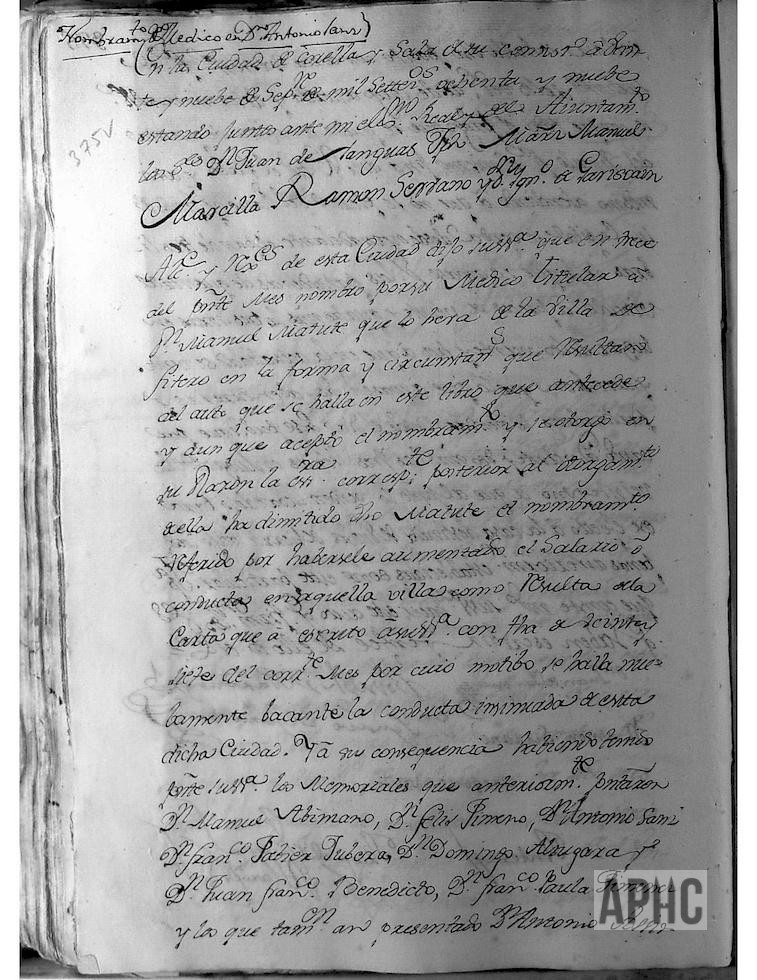 Nombram.to de Medico en D.n Antonio Sanz
En la Ciudad de Corella y Sala de su
te y nuebe de Sep.re de mil Settez.s ochenta y nuebe
estando junttos ante mi el ss.no Real y del Aiuntam.to
los S.res D.n Juan de Manuel
Marcilla Ramon Serrano y D.n Ign.o de Gariscain
Alc.e y Rex.s de esta Ciudad dijo su ss.a que en trece
del pñte Mes nombró por su Medico titular a
D.n Manuel Matute que lo hera de la Villa de
fitero en la forma y circunstan.s que Resultan
del auto que se halla en este libro que antecede
y aun que aceptó el nombram.to y se otorgó en
su Razon la ess.ra corresp.te posterior al otorgam.to
de ella ha dimitido dho Matute el nombram.to
Referido por habersele aumentado el Salario ô
conducta en aquella villa como Resulta de la
Carta que a escrito â su ss.a con fha de beinte y
siete del corr.te Mes por cuio motibo se halla nue-
bamente bacante la conducta insinuada de esta
dicha Ciudad. Y â su consequencia habiendo tenido
pñte su ss.a los Memoriales que anteriorm.te pñtaron
D.n Manuel Abimano, D.n felis Pireno, D.n Antonio Sanz
D.n fran.co Xabier Tubera, D.n Domingo y
D.n Juan fran.co Benedicto, D.n fran.co Paula Ximenez
y los que tam.en an presentado D.n Antonio
375v
APHC